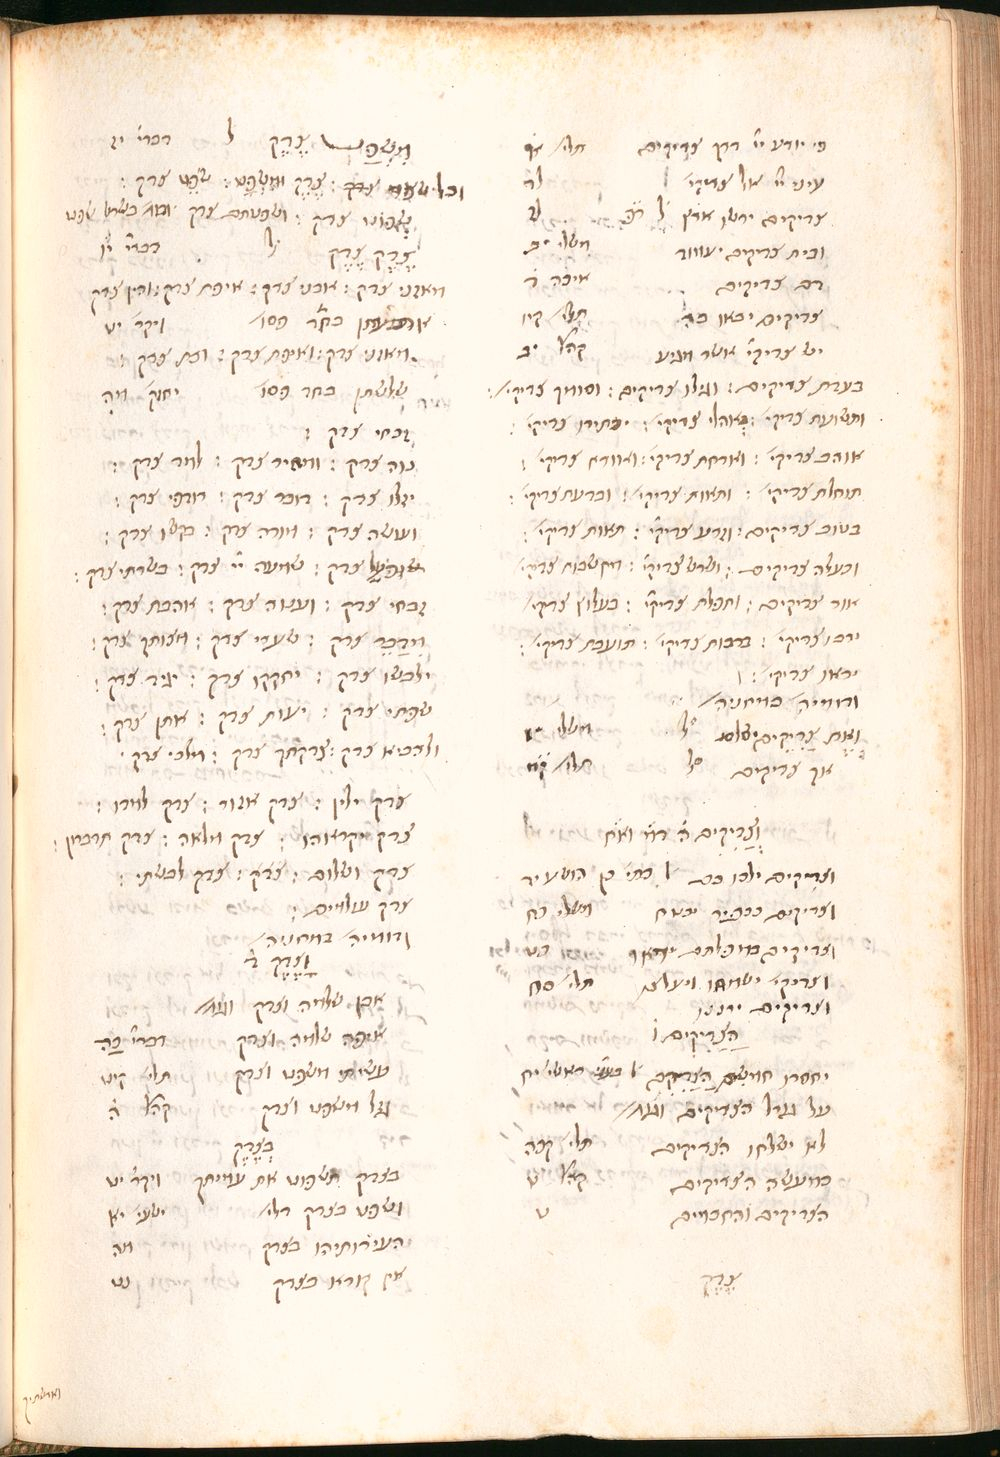 כי יודע יי דרך צדיקים תהי א
עיני יי אל צדיקי לד
צדיקים ירשו ארץ לז
ובית צדיקים יעמוד משלי יב
דם צדיקים איכה ד
צדיקים יבאו בה תהי קיח
יש צדיקי אשר מגיע קהל
בעדת צדיקים : וגילו צדיקים : וסומך צדיקי
ותשועת צדיקי : באהלי צדיקי : יכתירו צדיקי :
אוהב צדיקי : וארחת צדיקי : צדיקי :
תוחלת צדיקי : ותאות צדיקי : וברעת צדיקי :
בטוב צדיקים : וזרע צדיקי : תאות צדיקי :
צדיקים : ושרש צדיקי : מחשבות צדיקי
אור צדיקים : ותפלת צדיקי : בעלוץ צדיקי
ירבו צדיקי : ברבות צדיקי : תועבת צדיקי :
יראו צדיקי :
ודומיה במחניה
ואת צדיקים ישלם ל משלי
אך צדיקים ל תהי
וצדיקים ה
וצדיקים ילכו בם הושע יד
וצדיקים ככפיר יבטח משלי כח
וצדיקים במפלתם יראו כט
וצדיקי ישמחו יעלצו תהי סח
וצדיקים ירננו
הצדיקים ו
יחסרו חמשים הצדיקם בראשי יח
על גורל הצדיקים וגמ
לא ישלחו הצדיקים תהי קכה
כמעשה הצדיקים קהל
הצדיקים והחכמים ט
צדק
משפט צדק ל דברי
וכל שפט צדק : צדק ומשפט : שפט צדק :
צדק : ושפטתם צדק
צדק צדק ל דברי
מאזני צדק : אבני צדק : איפת צדק : והין צדק
בתר פסו ויקר יט
מאזני צדק : ואיפת צדק : ובת צדק :
שלשתן בתר פסו יחזק מה
זבחי צדק :
נוה צדק : צדק : למד צדק :
יזלו צדק : דובר צדק : רודפי צדק :
ועושה צדק : מורה צדק : בקשו צדק :
צדק : שמעה יי צדק : בשרתי צדק :
זבחי צדק : וענוה צדק : אהבת צדק :
מדבר צדק : שערי צדק : מצותך צדק :
ילבשו צדק : יחקקו צדק : יגיד צדק :
שפתי צדק : יעות צדק : אתן צדק :
ולהביא צדק : צדקתך צדק : מלכי צדק :
צדק ילין : צדק אזור : צדק למדו :
צדק יקראהו : צדק מלאה : צדק תדברון :
צדק ושלום : צדק : צדק לבשתי :
צדק עולמים :
ודומיה במחניה
וצדק ד
אבן שלמה וצדק וגמ
איפה שלמה וצדק דברי כה
עשיתי משפט וצדק תהי קיט
וגזל משפט וצדק קהל ה
בצדק
בצדק תשפוט את עמיתך ויקר יט
ושפט בצדק דלי ישעי יא
העירותיהו בצדק מה
אין קורא בצדק נט